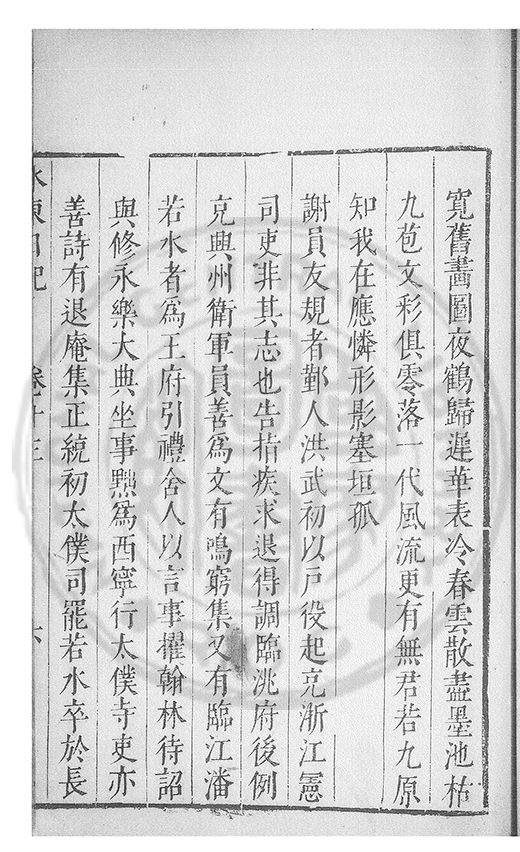 寬舊畵圖夜鶴歸遲華表冷春雲散盡墨池枯
九苞文彩俱零落一代風流更有無君若九原
知我在應憐形影塞垣孤
謝員友規者鄞人洪武初以戸役起充浙江憲
司吏非其志也告指疾求退得調臨洮府後例
充興州衛軍員善爲文有鳴窮集又有臨江潘
若水者爲王府引禮舍人以言事擢翰林待詔
與修永樂大典坐事黜爲西寧行太僕寺吏亦
善詩有退庵集正統初太僕司罷若水卒於長
水東日記 卷十三 六